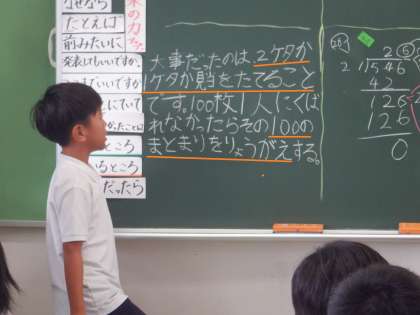 なぜなら
たとえば
前みたいに
発表してもいいですか
ところ
いるところ
だったら
大事だったのは、2ケタか
1ケタか見当をたてること
です。100枚1人にくば
れなかったらその100の
まとまりをりょうがえする。
26
546
42
126
126
0